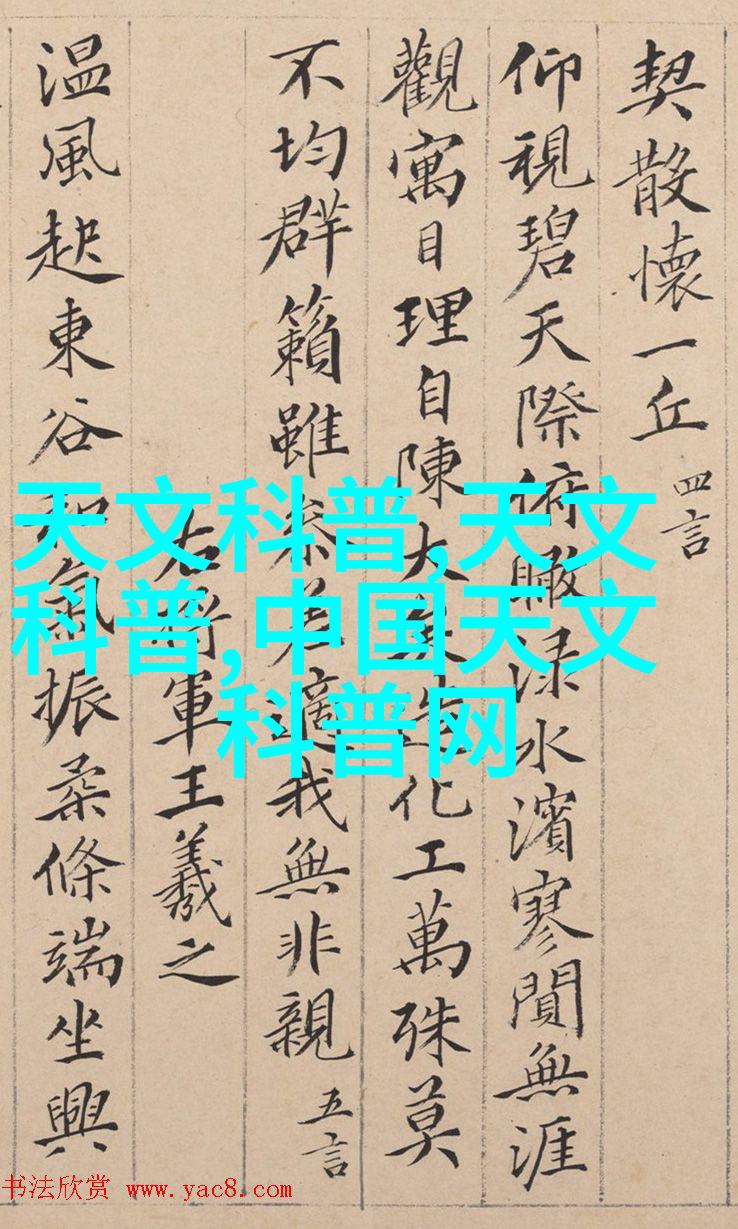 契散懷一丘 四言
仰視碧天際俯瞰淥水濱寥闃無涯
觀寓目理自陳大矣造化工萬殊莫
不均群籟雖參差適我無非親 五言
右將軍王羲之
溫風起東谷和氣振柔條端坐興
天文科普,天文
科普,中国天文
科普网
书法欣赏 www.yac8.com